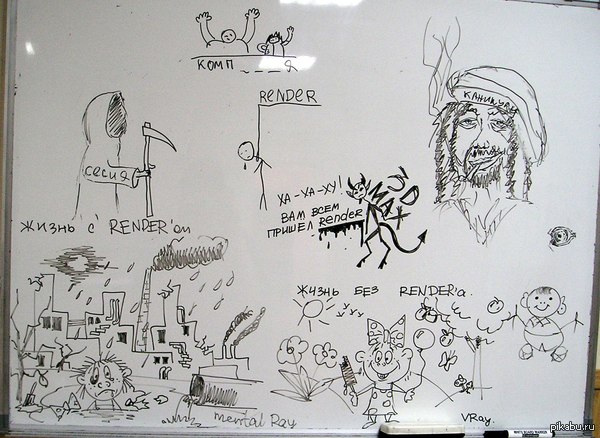 КОМП _ _ _ Я
RENDER
СЕСИЯ
КАНИКУЛЫ
ХА-ХА-ХУ!
ВАМ ВСЕМ
ПРИШЕЛ Render
3D
MAX
ЖИЗНЬ С RENDER'ом
ЖИЗНЬ БЕЗ RENDER'а.
mental Ray
VRay.
pikabu.ru